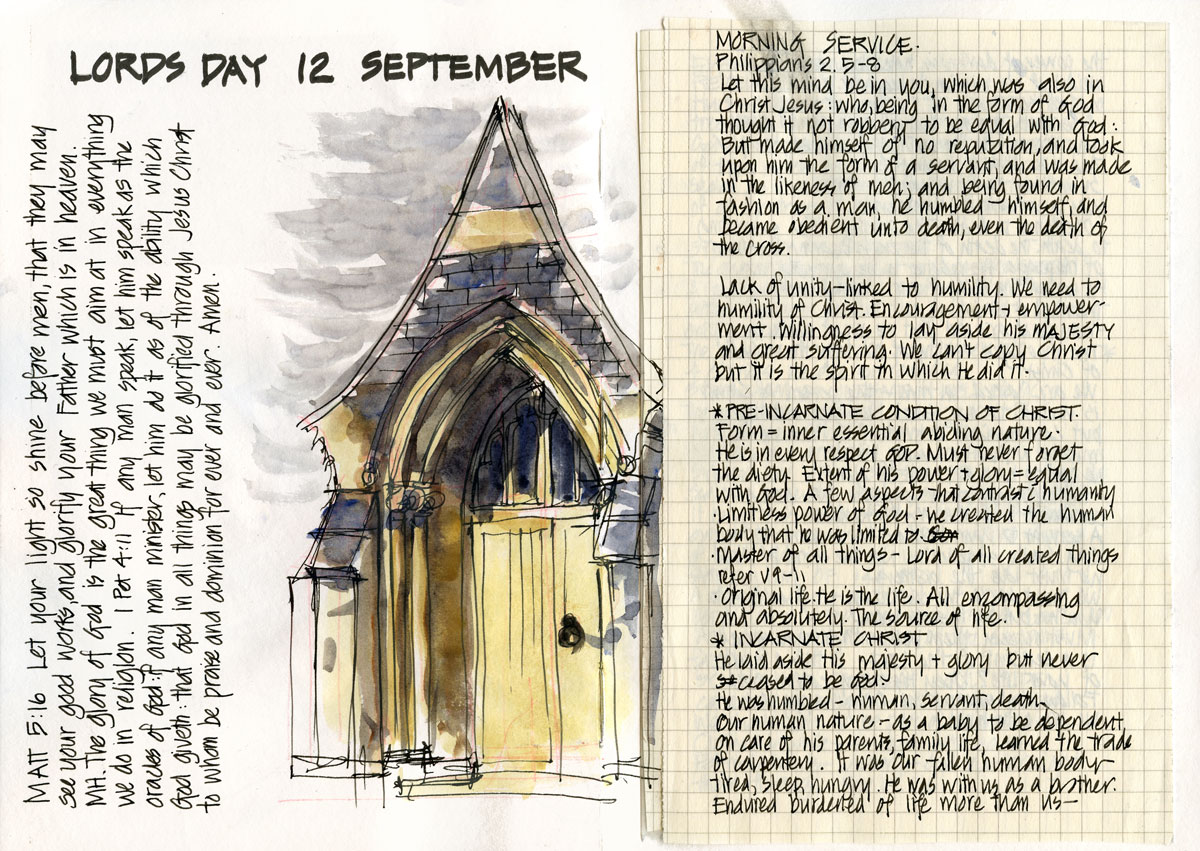 LORDS DAY 12 SEPTEMBER
MATT 5:16 Let your light so shine before men, that they may
see your good works, and glorify your Father which is in heaven.
MH. The glory of God is the great thing we must aim at in everything
we do in religion. 1 Pet 4:11 If any man speak, let him speak as the
oracles of God: if any man minister, let him do it as of the ability which
God giveth: that God in all things may be glorified through Jesus Christ
to whom be praise and dominion for ever and ever. Amen.
MORNING SERVICE.
Philippians 2. 5-8
Let this mind be in you, which was also in
Christ Jesus: who, being in the form of God
thought it not robbery to be equal with God:
But made himself of no reputation, and took
upon him the form of a servant, and was made
in the likeness of men; and being found in
fashion as a man, he humbled himself, and
became obedient unto death, even the death of
the cross.
Lack of unity - linked to humility. We need to
humility of Christ. Encouragement + empower-
ment. Willingness to lay aside his MAJESTY
and great suffering. We can't copy Christ
but it is the spirit in which He did it.
* PRE-INCARNATE CONDITION OF CHRIST.
Form = inner essential abiding nature.
He is in every respect GOD. Must never forget
the diety. Extent of his power + glory = equal
with God. A few aspects that contrast c humanity
· Limitless power of God - we created the human
body that he was limited to.
· Master of all things - Lord of all created things
refer v 9-11
· Original life. He is the life. All encompassing
and absolutely. The source of life.
* INCARNATE CHRIST
He laid aside His majesty + glory but never
ceased to be God.
He was humbled - human, servant, death.
Our human nature - as a baby to be dependent,
on care of his parents, family life, learned the trade
of carpentery. It was our fallen human body-
tired, sleep, hungry. He was with us as a brother.
Endured burdened of life more than us-